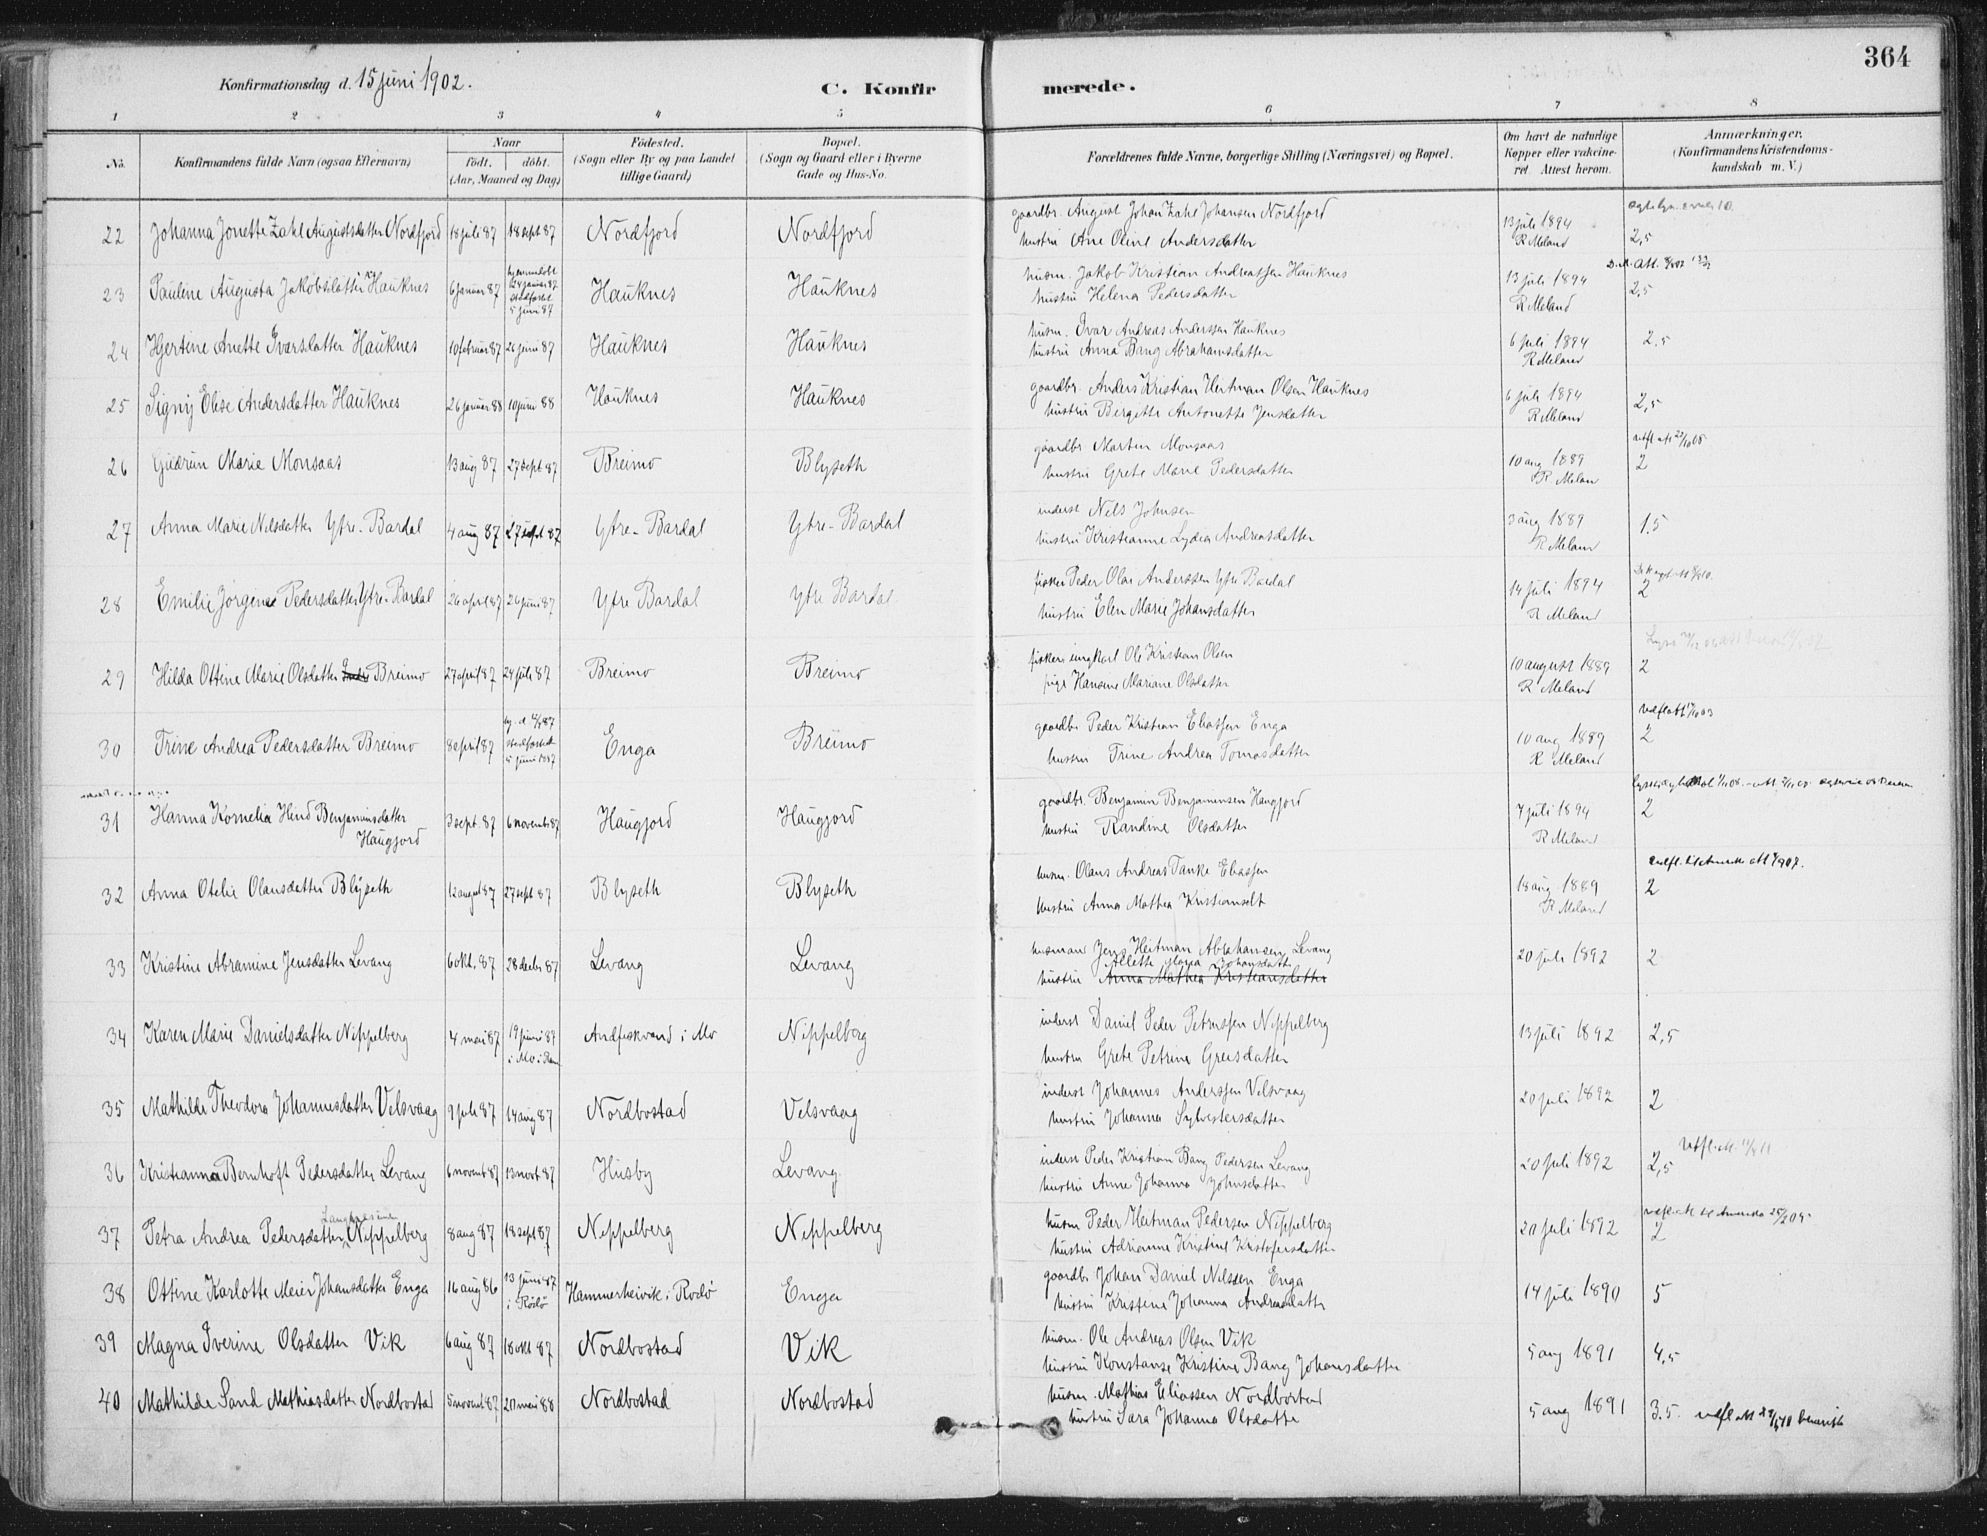 364
Konfirmationsdag d. 15 juni 1902.
C. Konfirmerede.
1 2 3 4 5 6 7 8
No. Konfirmandens fulde Navn (ogsaa Efternavn) Naar født. døbt. (Aar, Maaned og Dag) Fødested. (Sogn eller By og paa Landet tillige Gaard) Bopæl. (Sogn og Gaard eller i Byerne Gade og Hus-No. Forældrenes fulde Navne, borgerlige Stilling (Næringsvei) og Bopæl. Om havt de naturlige Kopper eller vakcineret. Attest herom. Anmærkninger. (Konfirmandens Kristendomskundskab m. V.)
22 Johanna Jonette Zahl Augustsdatter Nordfjord 18 juli 87 18 sept 87 Nordfjord Nordfjord gaardbr. August Johan Zahl Johansen Nordfjord 13 juli 1894
hustru Ane Oline Andersdatter R Meland 2,5
23 Pauline Augusta Jakobsdatter Hauknes 6 januar 87 hjemmedøbt 24 januar 87 stadfæstet 5 juni 87 Hauknes Hauknes husm. Jakob Kristian Andreassen Hauknes 13 juli 1894
hustru Helena Pedersdatter R Meland 2,5
24 Hjertine Anette Ivarsdatter Hauknes 10 februar 87 26 juni 87 Hauknes Hauknes husm. Ivar Andreas Anderssen Hauknes 6 juli 1894 2.5
hustru Anna Bang Abrahamsdatter R Meland
25 Signy Elise Andersdatter Hauknes 26 januar 88 10 juni 88 Hauknes Hauknes gaardbr. Anders Kristian Heitman Olsen Hauknes 6 juli 1894 2,5
hustru Bergette Antonette Jensdatter R Meland
26 Gudrun Marie Monsaas 13 aug 87 27 sept. 87 Breimo Blyseth gaardbr Morten Monsaas 10 aug 1889
hustru Grete Marie Pedersdatter R Melan 2
27 Anna Marie Nilsdatter Ytre-Bardal 4 aug 87 27 sept 87 Ytre-Bardal Ytre-Bardal inderst Nils Johnsen 3 aug 1889 1.5
hustru Kristianne Lydia Andreasdatter R Meland
28 Emilie Jørgine Pedersdatter Ytre-Bardal 26 april 87 26 juni 87 Ytre Bardal Ytre Bardal fisker Peder Olai Anderssen Ytre Bardal 14 juli 1894 2
hustru Elen Marie Johansdatter R Meland
29 Hilda Ottine Marie Olsdatter Breimo 27 april 87 24 juli 87 Breimo Breimo fisker ungkarl Ole Kristian Olsen 10 august 1889 2
pige Hansine Mariane Olsdatter R Meland
30 Trine Andrea Pedersdatter Breimo 8 april 87 stadfæstet 5 juni 1887 Enga Breimo gaardbr Peder Kristian Eliassen Enga 10 aug 1889 2
hustru Trine Andrea Tomasdatter R Meland
31 Hanna Kornelia Hind Benjaminsdatter Haugjord 3 sept. 87 6 novembr 87 Haugjord Haugjord gaardbr. Benjamin Benjaminsen Haugjord 7 juli 1894 2
hustru Randine Olsdatter R Meland
32 Anna Otelie Olausdatter Blyseth 12 august 87 27 sept 87 Blyseth Blyseth husm. Olaus Andreas Tanke Eliassen 18 aug 1889 2
hustru Anna Mathea Kristiansdt R Meland
33 Kristine Abramine Jensdatter Levang 6 okt. 87 28 decbr 87 Levang Levang husmand Jens Heitman Abrahamsen Levang 20 juli 1892 2
Alette Maria Johansdatter
hustru Anna Mathea Kristiansdatter
34 Karen Marie Danielsdatter Nippelberg 4 mai 87 19 juni 87 i Mo i Ran Andfiskvand i Mo Nippelberg inderst Daniel Peder Petrussen Nippelberg 13 juli 1892 2,5
hustru Grete Petrine Greisdatter
35 Mathilde Theodora Johannesdatter Velsvaag 9 juli 87 14 aug 87 Nordbostad Velsvaag inderst Johannes Anderssen Velsvaag 20 juli 1892 2
hustru Johanna Sylvestersdatter
36 Kristianna Bernhoft Pedersdatter Levang 6 novemb 87 13 novb 87 Husby Levang inderst Peder Kristian Bang Pedersen Levang 20 juli 1892 2,5
hustru Anne Johanna Johnsdatter
37 Petra Andrea Pedersdatter Nippelberg 8 aug 87 18 sept 87 Nippelberg Nippelberg husm Peder Heitman Pedersen Nippelberg 20 juli 1892 2
hustru Adrianne Kristine Kristofersdatter
38 Ottine Karlotte Meier Johansdatter Enga 16 aug 86 13 juni 87 i Rødø Hammerheivik i Rødø Enga gaardbr Johan Daniel Nilssen Enga 14 juli 1890 5
hustru Kristina Johanna Andreasdattr
39 Magna Iverine Olsdatter Vik 6 aug 87 18 okt 87 Nordbostad Vik husm. Ole Andreas Olsen Vik 5 aug 1891 4,5
hustru Konstanse Kristine Bang Johansdatter
40 Mathilde Sand Mathiasdatter Nordbostad 5 novemb 87 20 mai 88 Nordbostad Nordbostad husm. Mathias Eliassen Nordbostad 5 aug 1891 3.5.
hustru Sara Johanna Olsdatte